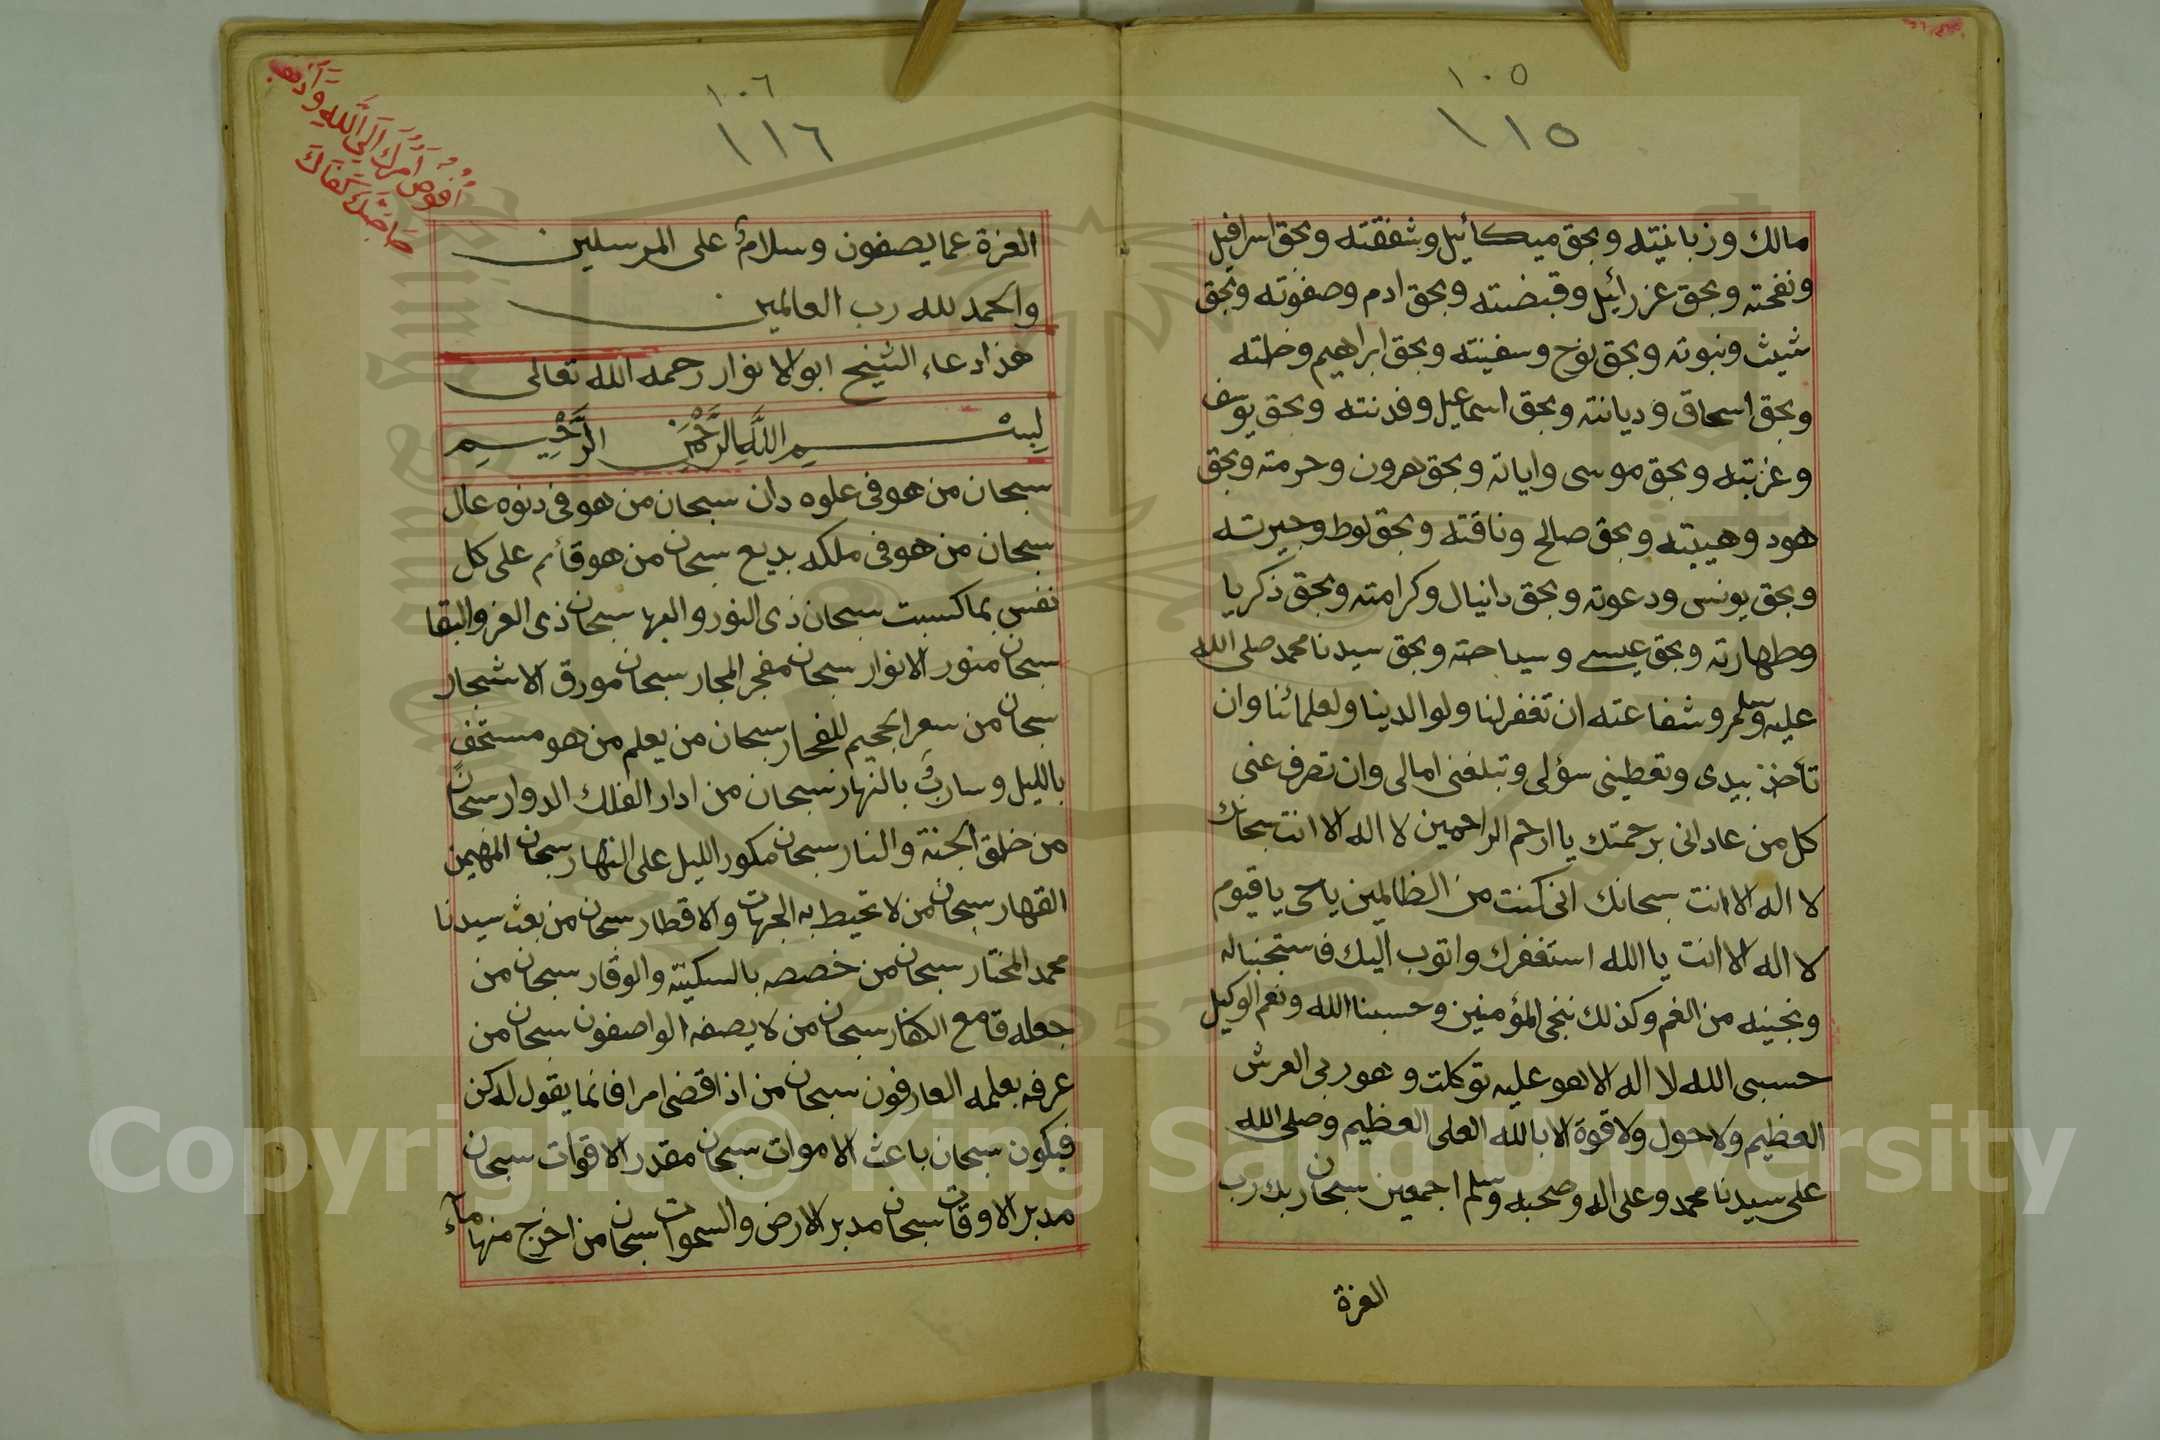 ١٠٥
١١٥
مالك وزبانيته وبحق ميكائيل وشفقته وبحق اسرافيل
ونفخته وبحق عزرائيل وقبضته وبحق ادم وصفوته وبحق
شيث ونبوته وبحق نوح وسفينته وبحق ابراهيم وخلته
وبحق اسحاق وديانته وبحق اسماعيل وفدنته وبحق يوسف
وغربته وبحق موسى واياته وبحق هرون وحرمته وبحق
هود وهيبته وبحق صالح وناقته وبحق لوط وجيرته
وبحق يونس ودعوته وبحق دانيال وكرامته وبحق ذكريا
وطهارته وبحق عيسى وسياحته وبحق سيدنا محمد صلى الله
عليه وسلم وشفاعته ان تغفر لنا ولوالدينا ولعلمائنا وان
تأخذ بيدى وتعطينى سؤلى وتبلغنى امالى وان تصرف عنى
كل من عادانى برحمتك يا ارحم الراحمين لا اله الا انت سبحانك
لا اله الا انت سبحانك انى كنت من الظالمين يا حى يا قيوم
لا اله الا انت يا الله استغفرك واتوب اليك فاستجبنا له
ونجينه من الغم وكذلك ننجى المؤمنين وحسبنا الله ونعم الوكيل
حسبى الله لا اله الا هو عليه توكلت وهو ربى العرش
العظيم ولا حول ولا قوة الا بالله العلى العظيم وصلى الله
على سيدنا محمد وعلى اله وصحبه وسلم اجمعين سبحان ربك رب
العزة
١٠٦
١١٦
أُفَوِّضُ أَمْرَكَ إِلَى اللَّهِ
حَاجَتَكَ كَفَاكَ
العزة عما يصفون وسلامٌ على المرسلين
والحمد لله رب العالمين
هذا دعاء الشيخ ابو الانوار رحمه الله تعالى
بِسْمِ اللَّهِ الرَّحْمَنِ الرَّحِيمِ
سبحان من هو فى علوه دان سبحان من هو فى دنوه عال
سبحان من هو فى ملكه بديع سبحان من هو قائم على كل
نفس بما كسبت سبحان ذى النور والبها سبحان ذى العز والبقا
سبحان منور الانوار سبحان مفجر البحار سبحان مورق الاشجار
سبحان من سعر الجحيم للفجار سبحان من يعلم من هو مستخفٍ
بالليل وساربٌ بالنهار سبحان من ادار الفلك الدوار سبحان
من خلق الجنة والنار سبحان مكور الليل على النهار سبحان المهيمن
القهار سبحان من لا تحيط به الجهات والاقطار سبحان من بعث سيدنا
محمد المختار سبحان من خصصه بالسكينة والوقار سبحان من
جعله قامع الكفار سبحان من لا يصفه الواصفون سبحان من
عرفه بعلمه العارفون سبحان من اذا قضى امرا فانما يقول له كن
فيكون سبحان باعث الاموات سبحان مقدر الاقوات سبحان
مدبر الاوقات سبحان مدبر الارض والسموات سبحان من اخرج منها ماء
Copyright © King Saud University